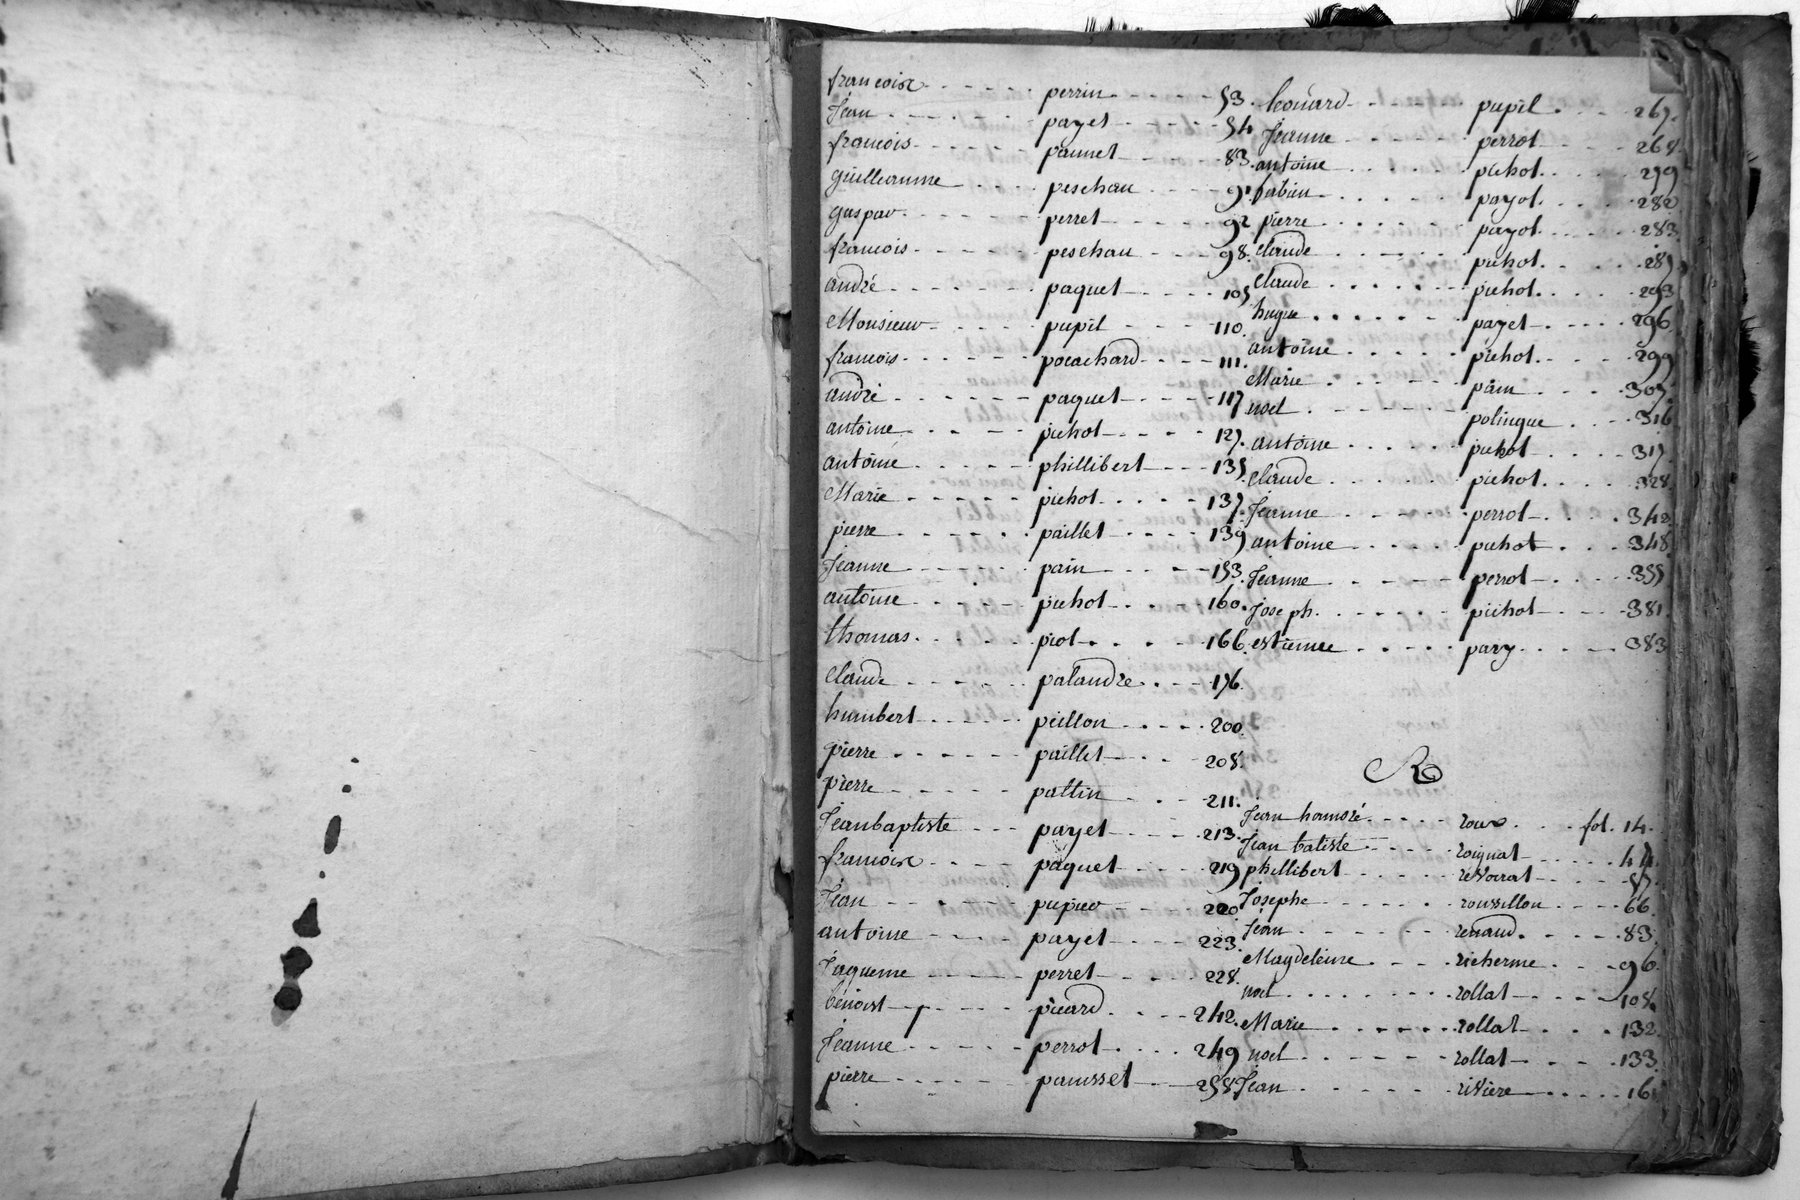 francoise perrin 53.
Jean payet 54
francois paunet 83.
guilleaume peschau 91
gaspar perret 92
francois peschau 98.
andré paquet 105
Monsieur pupil 110.
francois pocachard 111.
andré paquet 117
antoine pichot 127.
antoine phillibert 135
Marie pichot 137.
pierre paillet 139
Jeanne pain 153.
antoine pichot 160.
thomas piot 166.
claude palandre 176.
humbert peillon 200
pierre paillet 208.
pierre pattin 211.
Jeanbaptiste payet 213.
francoise paquet 219
Jean pupier 220
antoine payet 223.
Jaqueme perret 228.
benoist picard 242.
Jeanne perrot 249
pierre pausset 255
leonard pupil 267.
Jeanne perrot 268
antoine pichot 279
fabien payot 282
pierre payot 283
claude pichot 287
claude pichot 293
hugue payet 296
antoine pichot 299
Marie pain 307.
noel polingue 316
antoine pichot 317
claude pichot 328
Jeanne perrot 342
antoine pichot 348
Jeanne perrot 355
Joseph pichot 381
estiennee pary 383
R
Jean honnoré roux fol. 14.
Jean batiste roignat 44
phillibert revoirat 57.
Josephe roussillon 66.
Jean renaud 83
Magdeleine richerme 96.
noel rollat 108.
Marie rollat 132
noel rollat 133.
Jean riviere